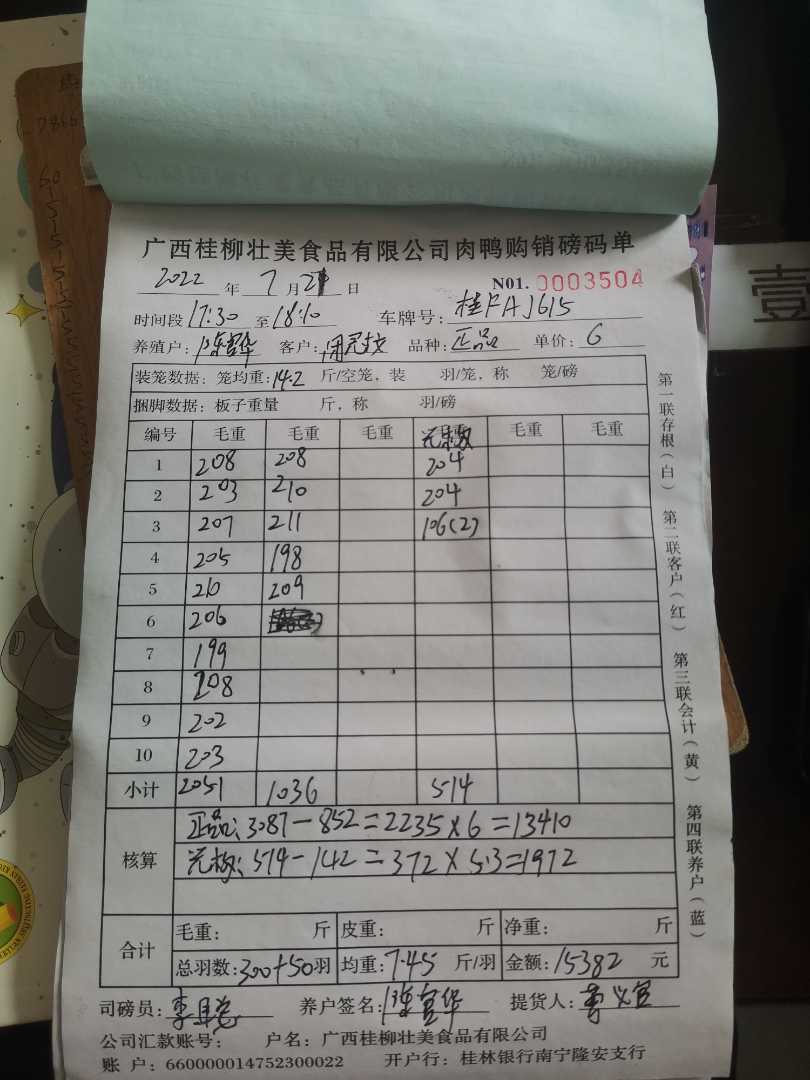 广西桂柳壮美食品有限公司肉鸭购销磅码单
2022 年 7 月 21 日 N01. 0003504
时间段 17:30 至 18:10 车牌号: 桂FAJ615
养殖户: 陈富华 客户: 品种: 正品 单价: 6
装笼数据: 笼均重: 14.2 斤/空笼, 装 羽/笼, 称 笼/磅
捆脚数据: 板子重量 斤, 称 羽/磅
编号 毛重 毛重 毛重 毛重 毛重 毛重
1 208 208 204
2 203 210 204
3 207 211 106(2)
4 205 198
5 210 209
6 206
7 199
8 208
9 202
10 203
小计 2051 1036 514
核算
正品: 3087-852=2235×6=13410
514-142=372×5.3=1972
合计
毛重: 斤 皮重: 斤 净重: 斤
总羽数: 300+50 羽 均重: 7.45 斤/羽 金额: 15382 元
司磅员: 养户签名: 陈富华 提货人:
公司汇款账号: 户名: 广西桂柳壮美食品有限公司
账 户: 660000014752300022 开户行: 桂林银行南宁隆安支行
第一联存根(白) 第二联客户(红) 第三联会计(黄) 第四联养户(蓝)
壹